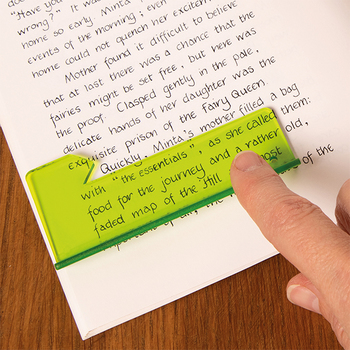 "Have you
wrong?" It was
home so early Minta's
events of the morning, even
home could not quench her excitement
Mother found it difficult to believe
that at last there was a chance that the
fairies might be set free, but here was
the proof. Clasped gently in the pale,
delicate hands of her daughter was the
exquisite prison of the Fairy Queen.
Quickly, Minta's mother filled a bag
with "the essentials", as she called them:
food for the journey and a rather old,
faded map of the Hill
of the